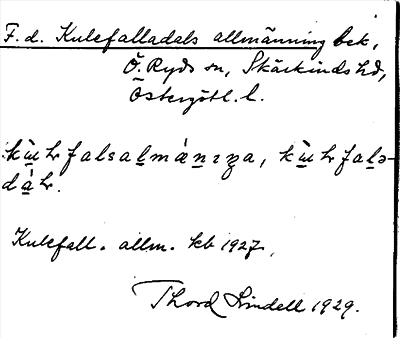 F. d. Kulefalladals allmänning bek,
Ö. Ryds sn, Skärkinds hd,
Östergötl. l.
falsalmäniŋa,
Kulefall. allm. kb 1927.
Thord Lindell 1929.